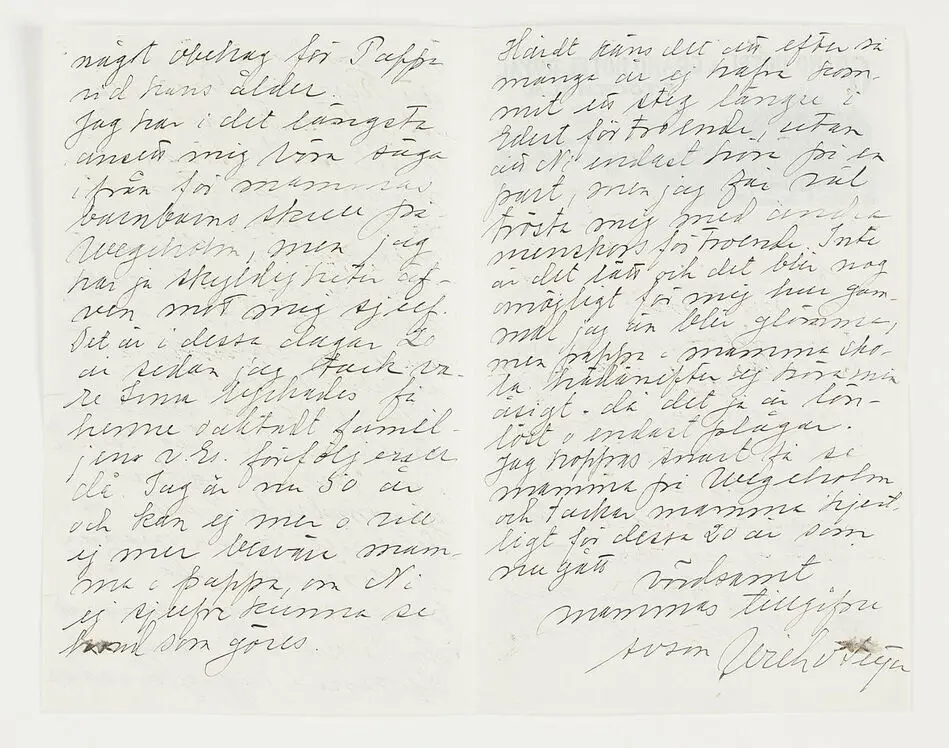 något obehag för Pappa
vid hans ålder.
Jag har i det längsta
ansett mig böra säga
ifrån för mammas
barnbarns skull på
Wegeholm, men jag
har ju skyldigheter äf-
ven mot mig sjelf.
Det är i dessa dagar 20
år sedan jag tack va-
re lyckades få
henne familjen
v. Es. förföljerser
då. Jag är nu 50 år
och kan ej mer o vill
ej mer besvära mam-
ma o pappa, om Ni
ej sjelfva kunna se
hvad som göres.
Hårdt käns det att efter så
många år ej hafva kom-
mit ett steg längre i
Edert förtroende, utan
att Ni endast höra på en
part, men jag får väl
trösta mig med andra
menskors förtroende. Inte
är det lätt och det blir nog
omöjligt för mig hur gam-
mal jag än blir glömma,
men pappa o mamma sko-
la hädanefter ej höra min
åsigt - då det ju är lön-
löst o endast plågar.
Jag hoppas snart få se
mamma på Wegeholm
och tackar mamma hjert-
ligt för dessa 20 år som
nu gått
vördsamt
mammas tillgifne